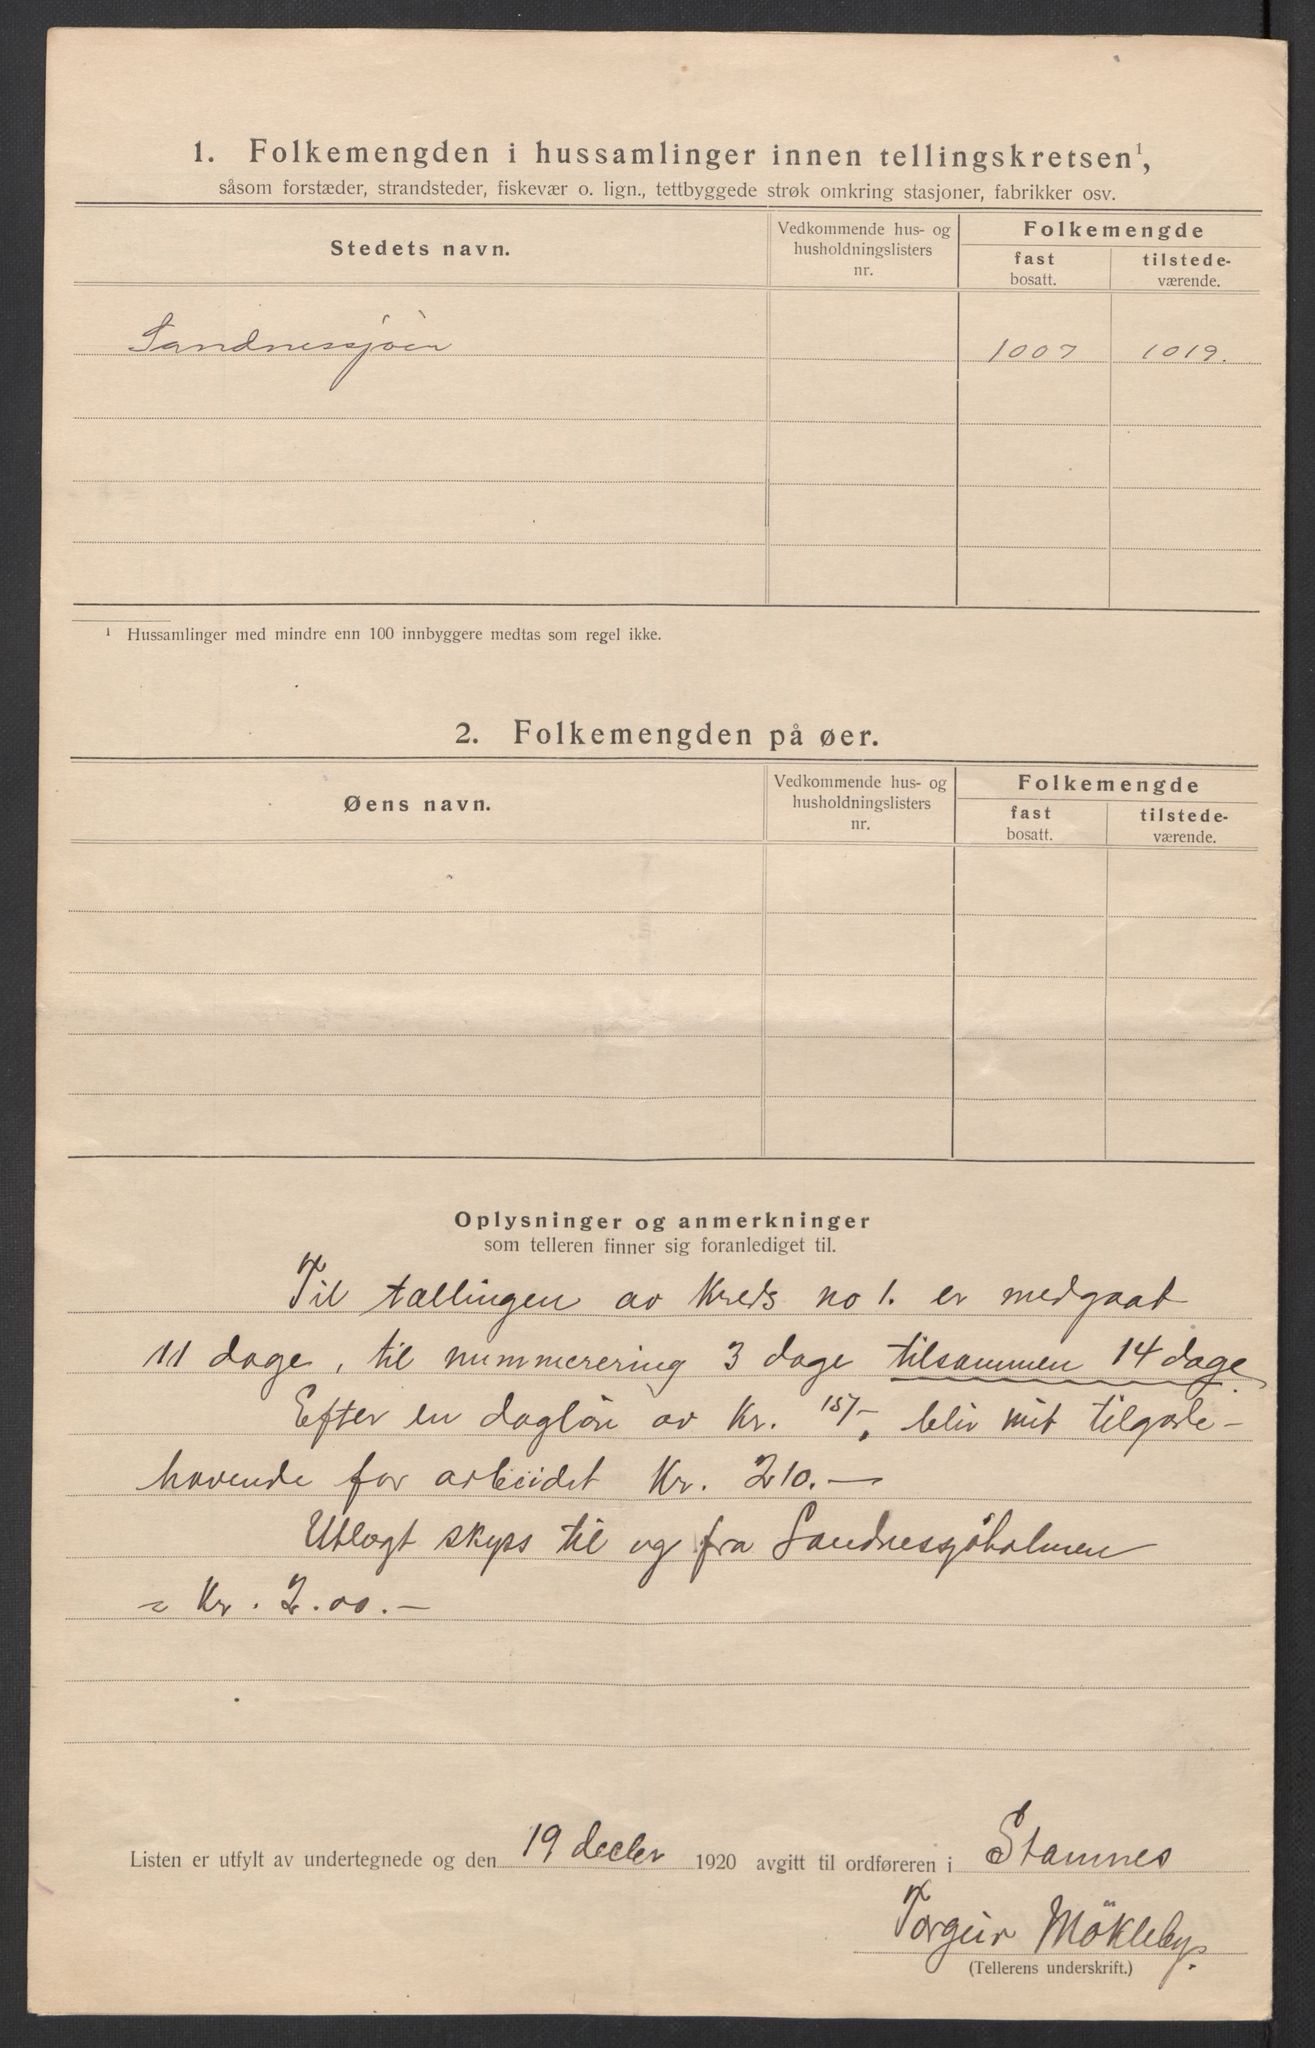 1. Folkemengden i hussamlinger innen tellingskretsen¹,
såsom forstæder, strandsteder, fiskevær o. lign., tettbyggede strøk omkring stasjoner, fabrikker osv.
Stedets navn.
Vedkommende hus- og husholdningslisters nr.
Folkemengde
fast bosatt.
tilstede-værende.
Sandnessjøen 1007 1019.
¹ Hussamlinger med mindre enn 100 innbyggere medtas som regel ikke.
2. Folkemengden på øer.
Øens navn.
Vedkommende hus- og husholdningslisters nr.
Folkemengde
fast bosatt.
tilstede-værende.
Oplysninger og anmerkninger
som telleren finner sig foranlediget til.
Til tællingen av Kreds no 1. er medgaat
11 dage, til nummerering 3 dage tilsammen 14 dage.
Efter en dagløn av Kr. 15/-, bliv mit tilgode-
havende for arbeidet Kr. 210.—
Utlagt skyss til og fra Sandnessjöholmen
= Kr. 2.00.—
Listen er utfylt av undertegnede og den 19 decbr 1920 avgitt til ordføreren i Stamnes
Torgeir Mökleby.
(Tellerens underskrift.)